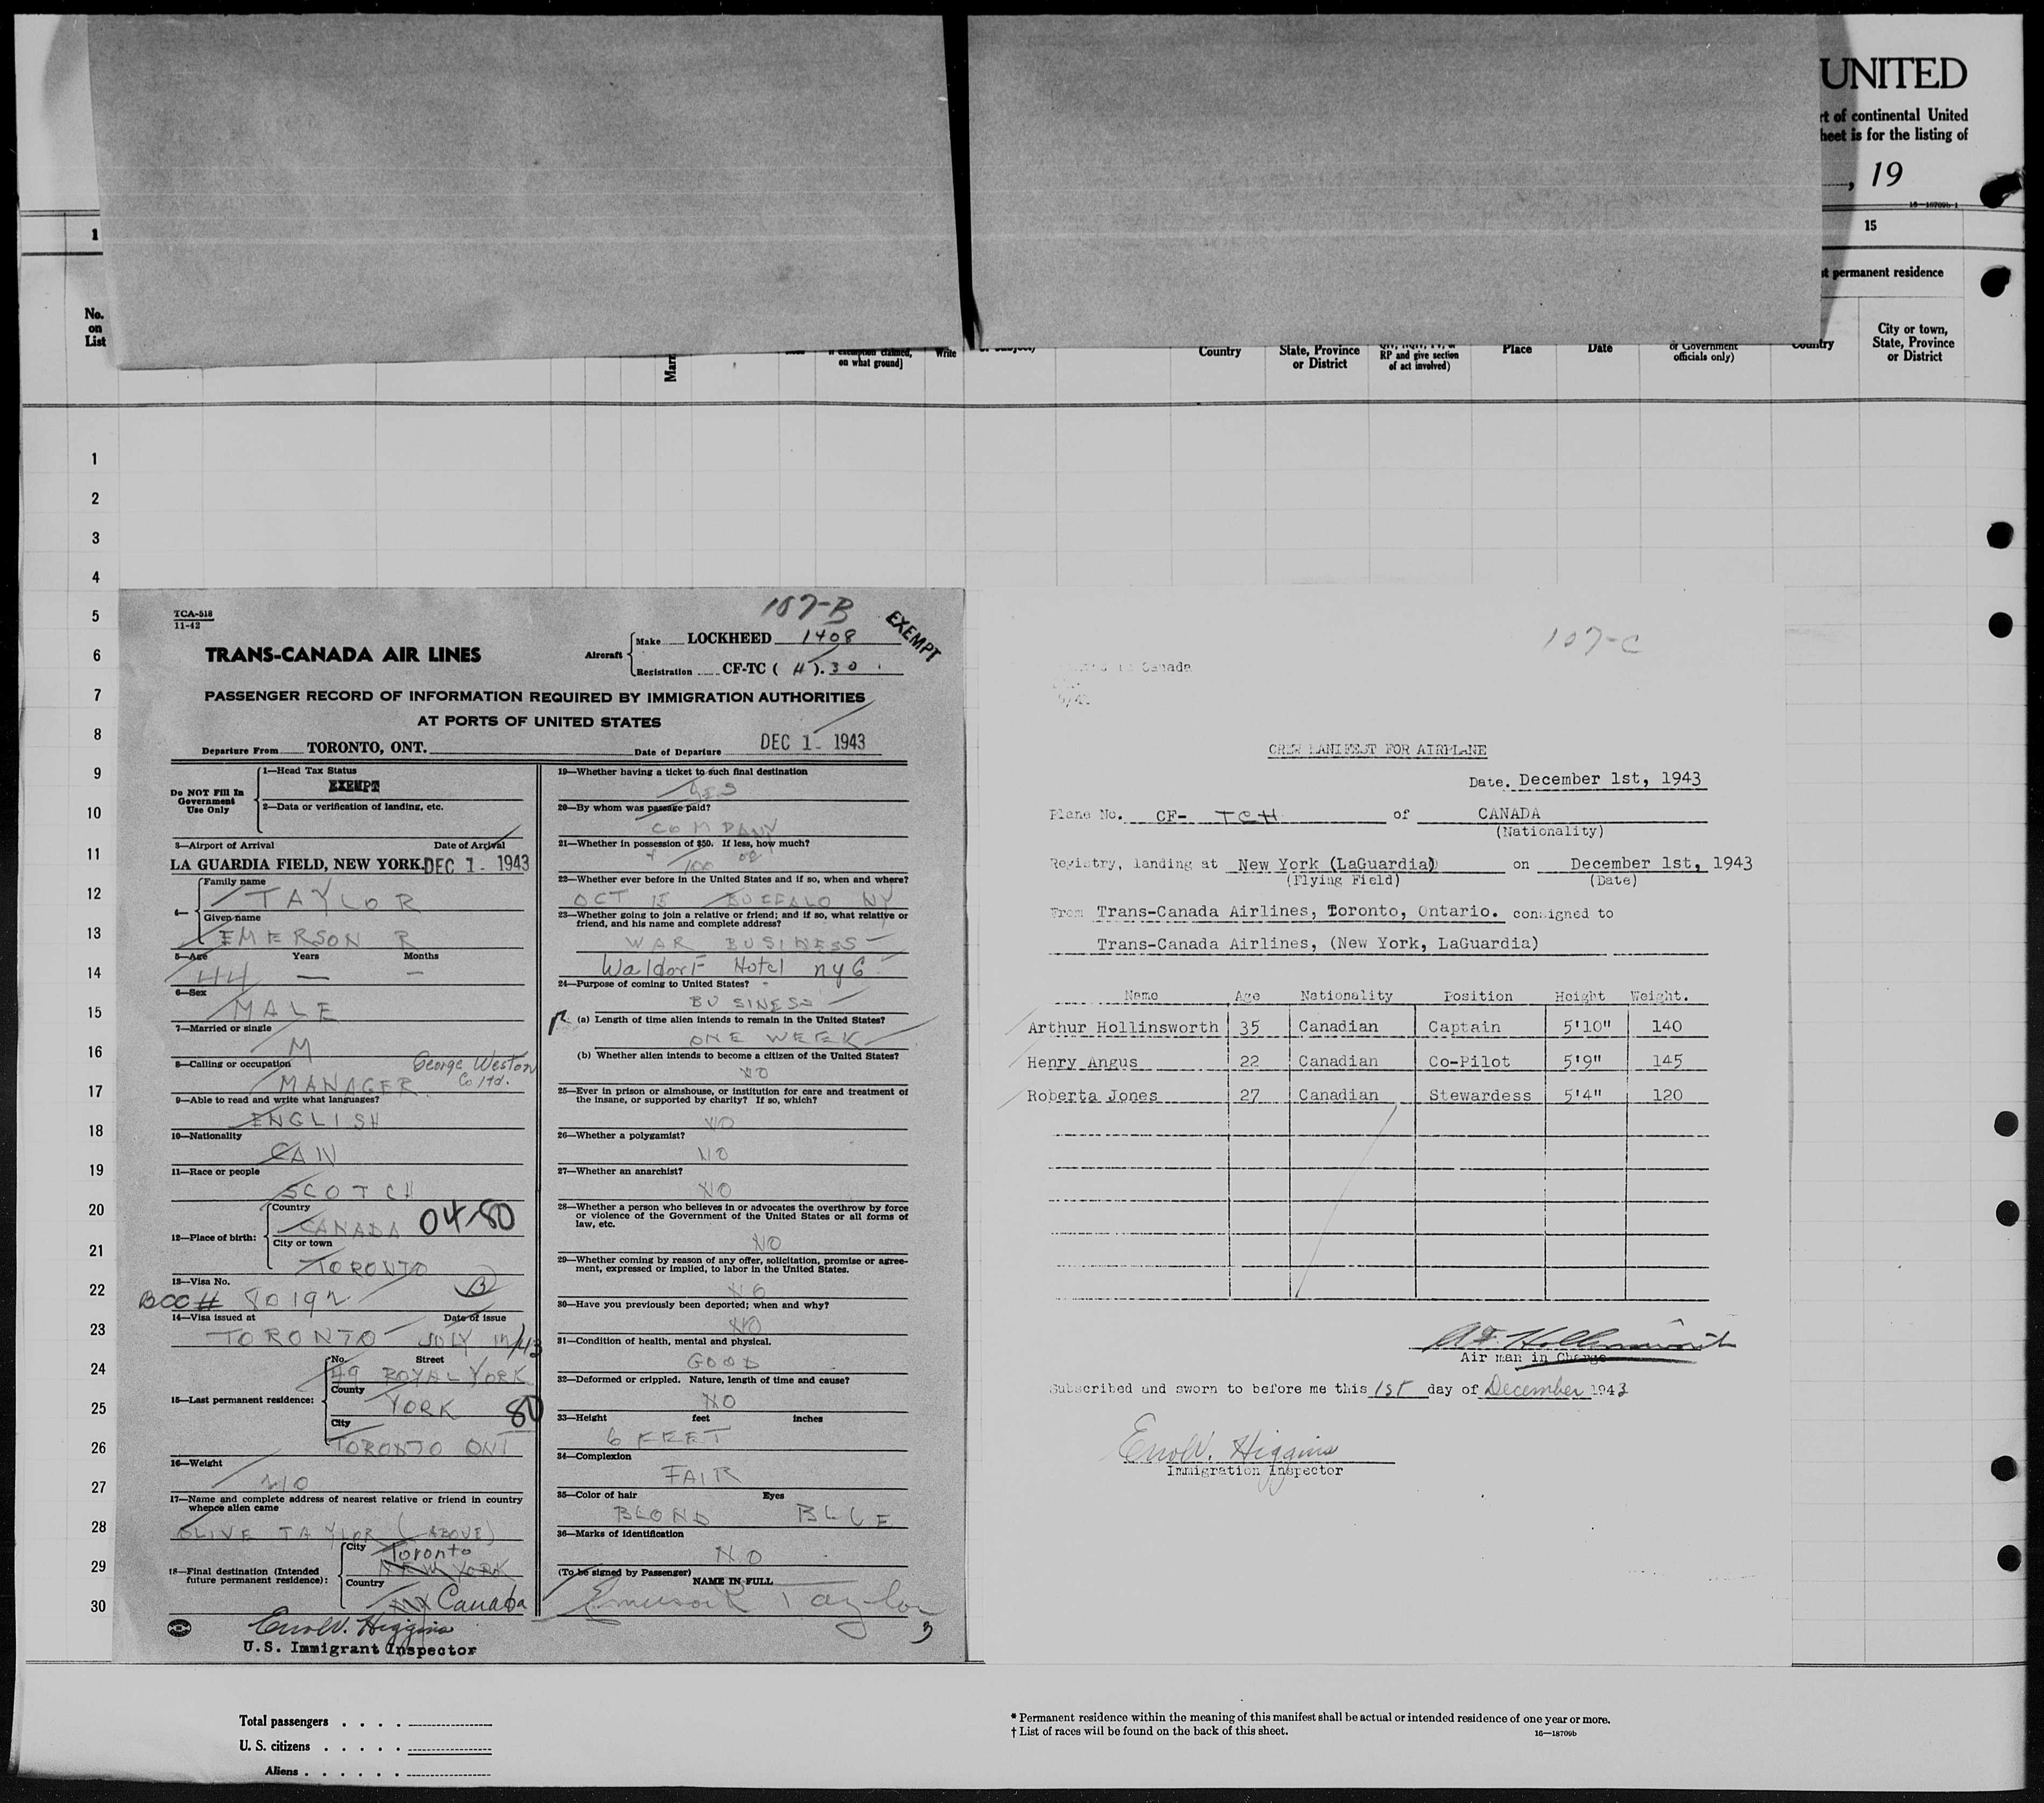 UNITED
rt of continental United
heet is for the listing of
, 19
16—18709b-1
1
15
t permanent residence
No.
on
List
on what ground]
Write
Country
State, Province
or District
RP and give section
of act involved)
Place
Date
or Government
officials only)
Country
City or town,
State, Province
or District
1
2
3
4
5
6
7
8
9
10
11
12
13
14
15
16
17
18
19
20
21
22
23
24
25
26
27
28
29
30
TCA-518
11-42
107-B
EXEMPT
TRANS-CANADA AIR LINES
Aircraft
Make LOCKHEED 1408
Registration CF-TC ( H ). 30
PASSENGER RECORD OF INFORMATION REQUIRED BY IMMIGRATION AUTHORITIES
AT PORTS OF UNITED STATES
Departure From TORONTO, ONT. Date of Departure DEC 1 - 1943
Do NOT Fill In
Government
Use Only
1—Head Tax Status
EXEMPT
2—Data or verification of landing, etc.
3—Airport of Arrival Date of Arrival
LA GUARDIA FIELD, NEW YORK. DEC 1 - 1943
4—
Family name
TAYLOR
Given name
EMERSON R
5—Age Years Months
44 — —
6—Sex
MALE
7—Married or single
M
8—Calling or occupation George Weston
MANAGER Co ltd.
9—Able to read and write what languages?
ENGLISH
10—Nationality
CAN
11—Race or people
SCOTCH
12—Place of birth:
Country
CANADA 04-80
City or town
TORONTO
13—Visa No. B
BCC# 80192
14—Visa issued at Date of issue
TORONTO - JULY /43
15—Last permanent residence:
No. Street
49 ROYAL YORK
County
YORK 80
City
TORONTO ONT
16—Weight
210
17—Name and complete address of nearest relative or friend in country
whence alien came
OLIVE TAYLOR (ABOVE)
18—Final destination (Intended
future permanent residence):
City Toronto
NEW YORK
Country
Canada
Errol V. Higgins
U.S. Immigrant Inspector
19—Whether having a ticket to such final destination
YES
20—By whom was passage paid?
COMPANY
21—Whether in possession of $50. If less, how much?
100
22—Whether ever before in the United States and if so, when and where?
OCT 15 BUFFALO NY
23—Whether going to join a relative or friend; and if so, what relative or
friend, and his name and complete address?
WAR BUSINESS
Waldorf Hotel NYC
24—Purpose of coming to United States?
BUSINESS
(a) Length of time alien intends to remain in the United States?
ONE WEEK
(b) Whether alien intends to become a citizen of the United States?
NO
25—Ever in prison or almshouse, or institution for care and treatment of
the insane, or supported by charity? If so, which?
NO
26—Whether a polygamist?
NO
27—Whether an anarchist?
NO
28—Whether a person who believes in or advocates the overthrow by force
or violence of the Government of the United States or all forms of
law, etc.
NO
29—Whether coming by reason of any offer, solicitation, promise or agree-
ment, expressed or implied, to labor in the United States.
NO
30—Have you previously been deported; when and why?
NO
31—Condition of health, mental and physical.
GOOD
32—Deformed or crippled. Nature, length of time and cause?
NO
33—Height feet inches
6 FEET
34—Complexion
FAIR
35—Color of hair Eyes
BLOND BLUE
36—Marks of identification
NO
(To be signed by Passenger)
NAME IN FULL
Emerson R Taylor
3
107-C
Canada
CREW MANIFEST FOR AIRPLANE
Date. December 1st, 1943
Plane No. CF- TCH of CANADA
(Nationality)
Registry, landing at New York (LaGuardia) on December 1st, 1943
(Flying Field) (Date)
From Trans-Canada Airlines, Toronto, Ontario. consigned to
Trans-Canada Airlines, (New York, LaGuardia)
Name Age Nationality Position Height Weight.
Arthur Hollinsworth 35 Canadian Captain 5'10" 140
Henry Angus 22 Canadian Co-Pilot 5'9" 145
Roberta Jones 27 Canadian Stewardess 5'4" 120
A Hollinsworth
Air man in Charge
Subscribed and sworn to before me this 1st day of December 1943
Errol V. Higgins
Immigration Inspector
Total passengers . . . .
U. S. citizens . . . . .
Aliens . . . . . .
* Permanent residence within the meaning of this manifest shall be actual or intended residence of one year or more.
† List of races will be found on the back of this sheet. 16—18709b